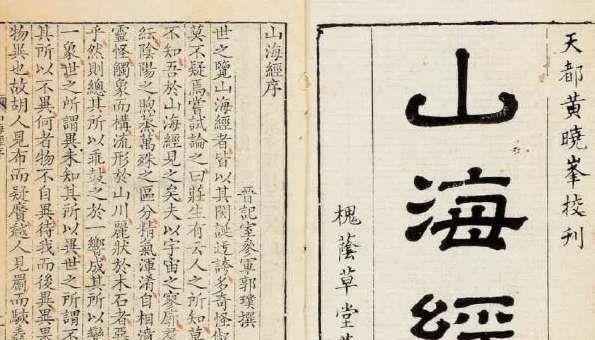 天都黃曉峯挍刊
山海經
槐蔭草堂
山海經序
晉記室參軍郭璞撰
世之覽山海經者皆以其閎誕迂誇多奇怪俶
莫不疑焉嘗試論之曰莊生有云人之所知莫
不知吾於山海經見之矣夫以宇宙之寥廓羣
紜陰陽之煦蒸萬殊之區分精氣渾淆自相濆
靈怪觸象而構流形於山川麗狀於木石者惡
乎然則總其所以乖鼓之於一響成其所以變
一象世之所謂異未知其所以異世之所謂不
其所以不異何者物不自異待我而後異異果
物異也故胡人見布而疑黂越人見罽而駭毳